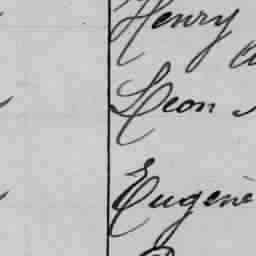 Henry
Leon
Eugène